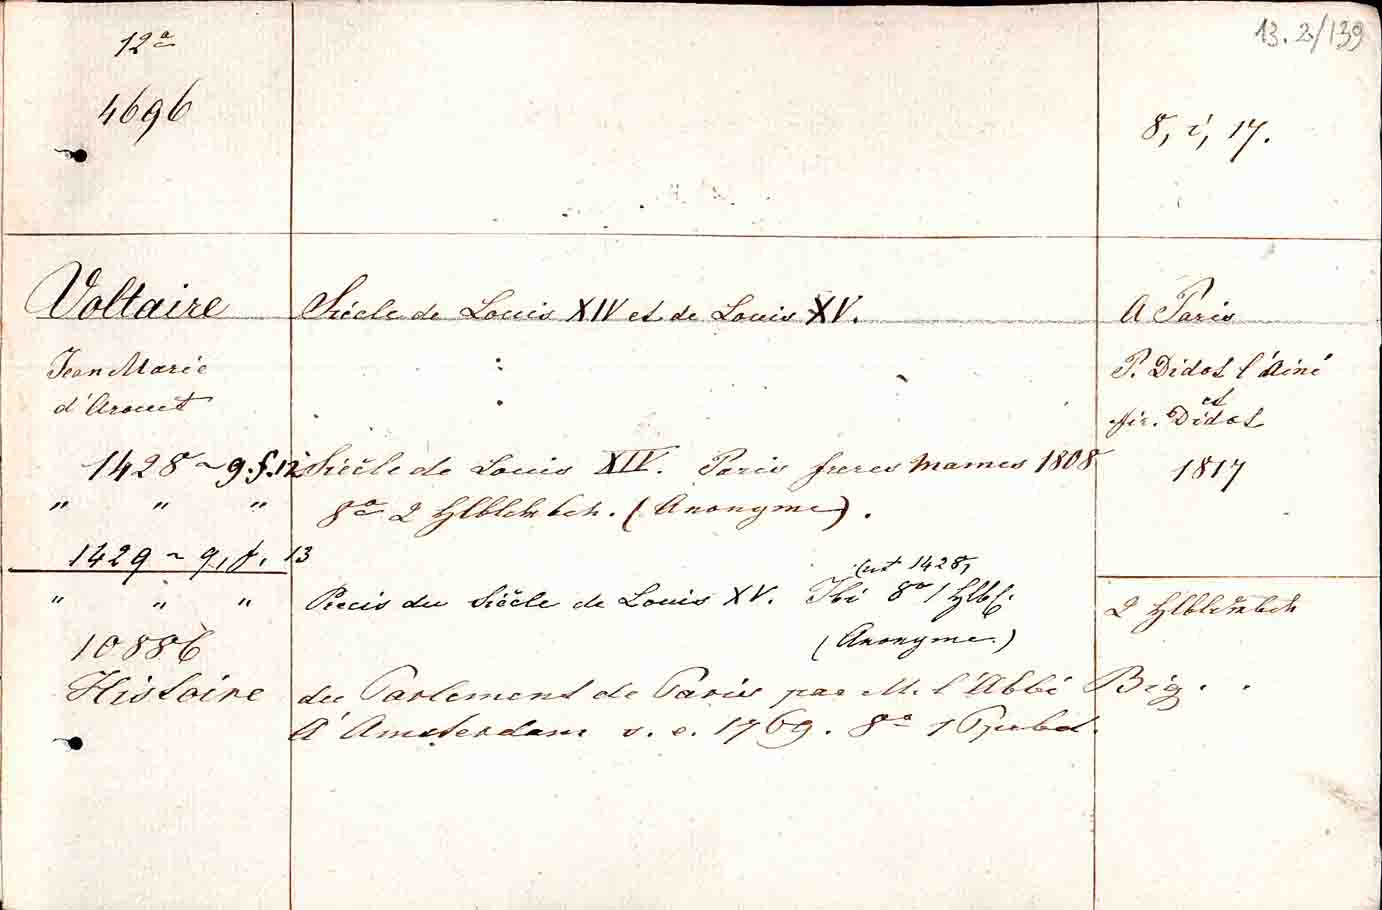 13. 2/139
12ª
4696
8, i, 17.
Voltaire Siécle de Louis XIV et de Louis XV. A Paris
Jean Marie P. Didot l'Ainé
d'Arouet et
fir. Didot
1428 ~ 9.f.12 Siécle de Louis XIV. Paris freres Mames 1808 1817
" " " 8º 2 Hlbldrbch. (Anonyme).
1429 ~ 9, f. 13
1428,
" " " Precis du Siécle de Louis XV. Ibi 8º 1 Hlbf. 2 Hlbldrbch
10886 (Anonyme.)
Histoire du Parlement de Paris par M. l'Abbé Big..
A Amsterdam s. e. 1769. 8º 1